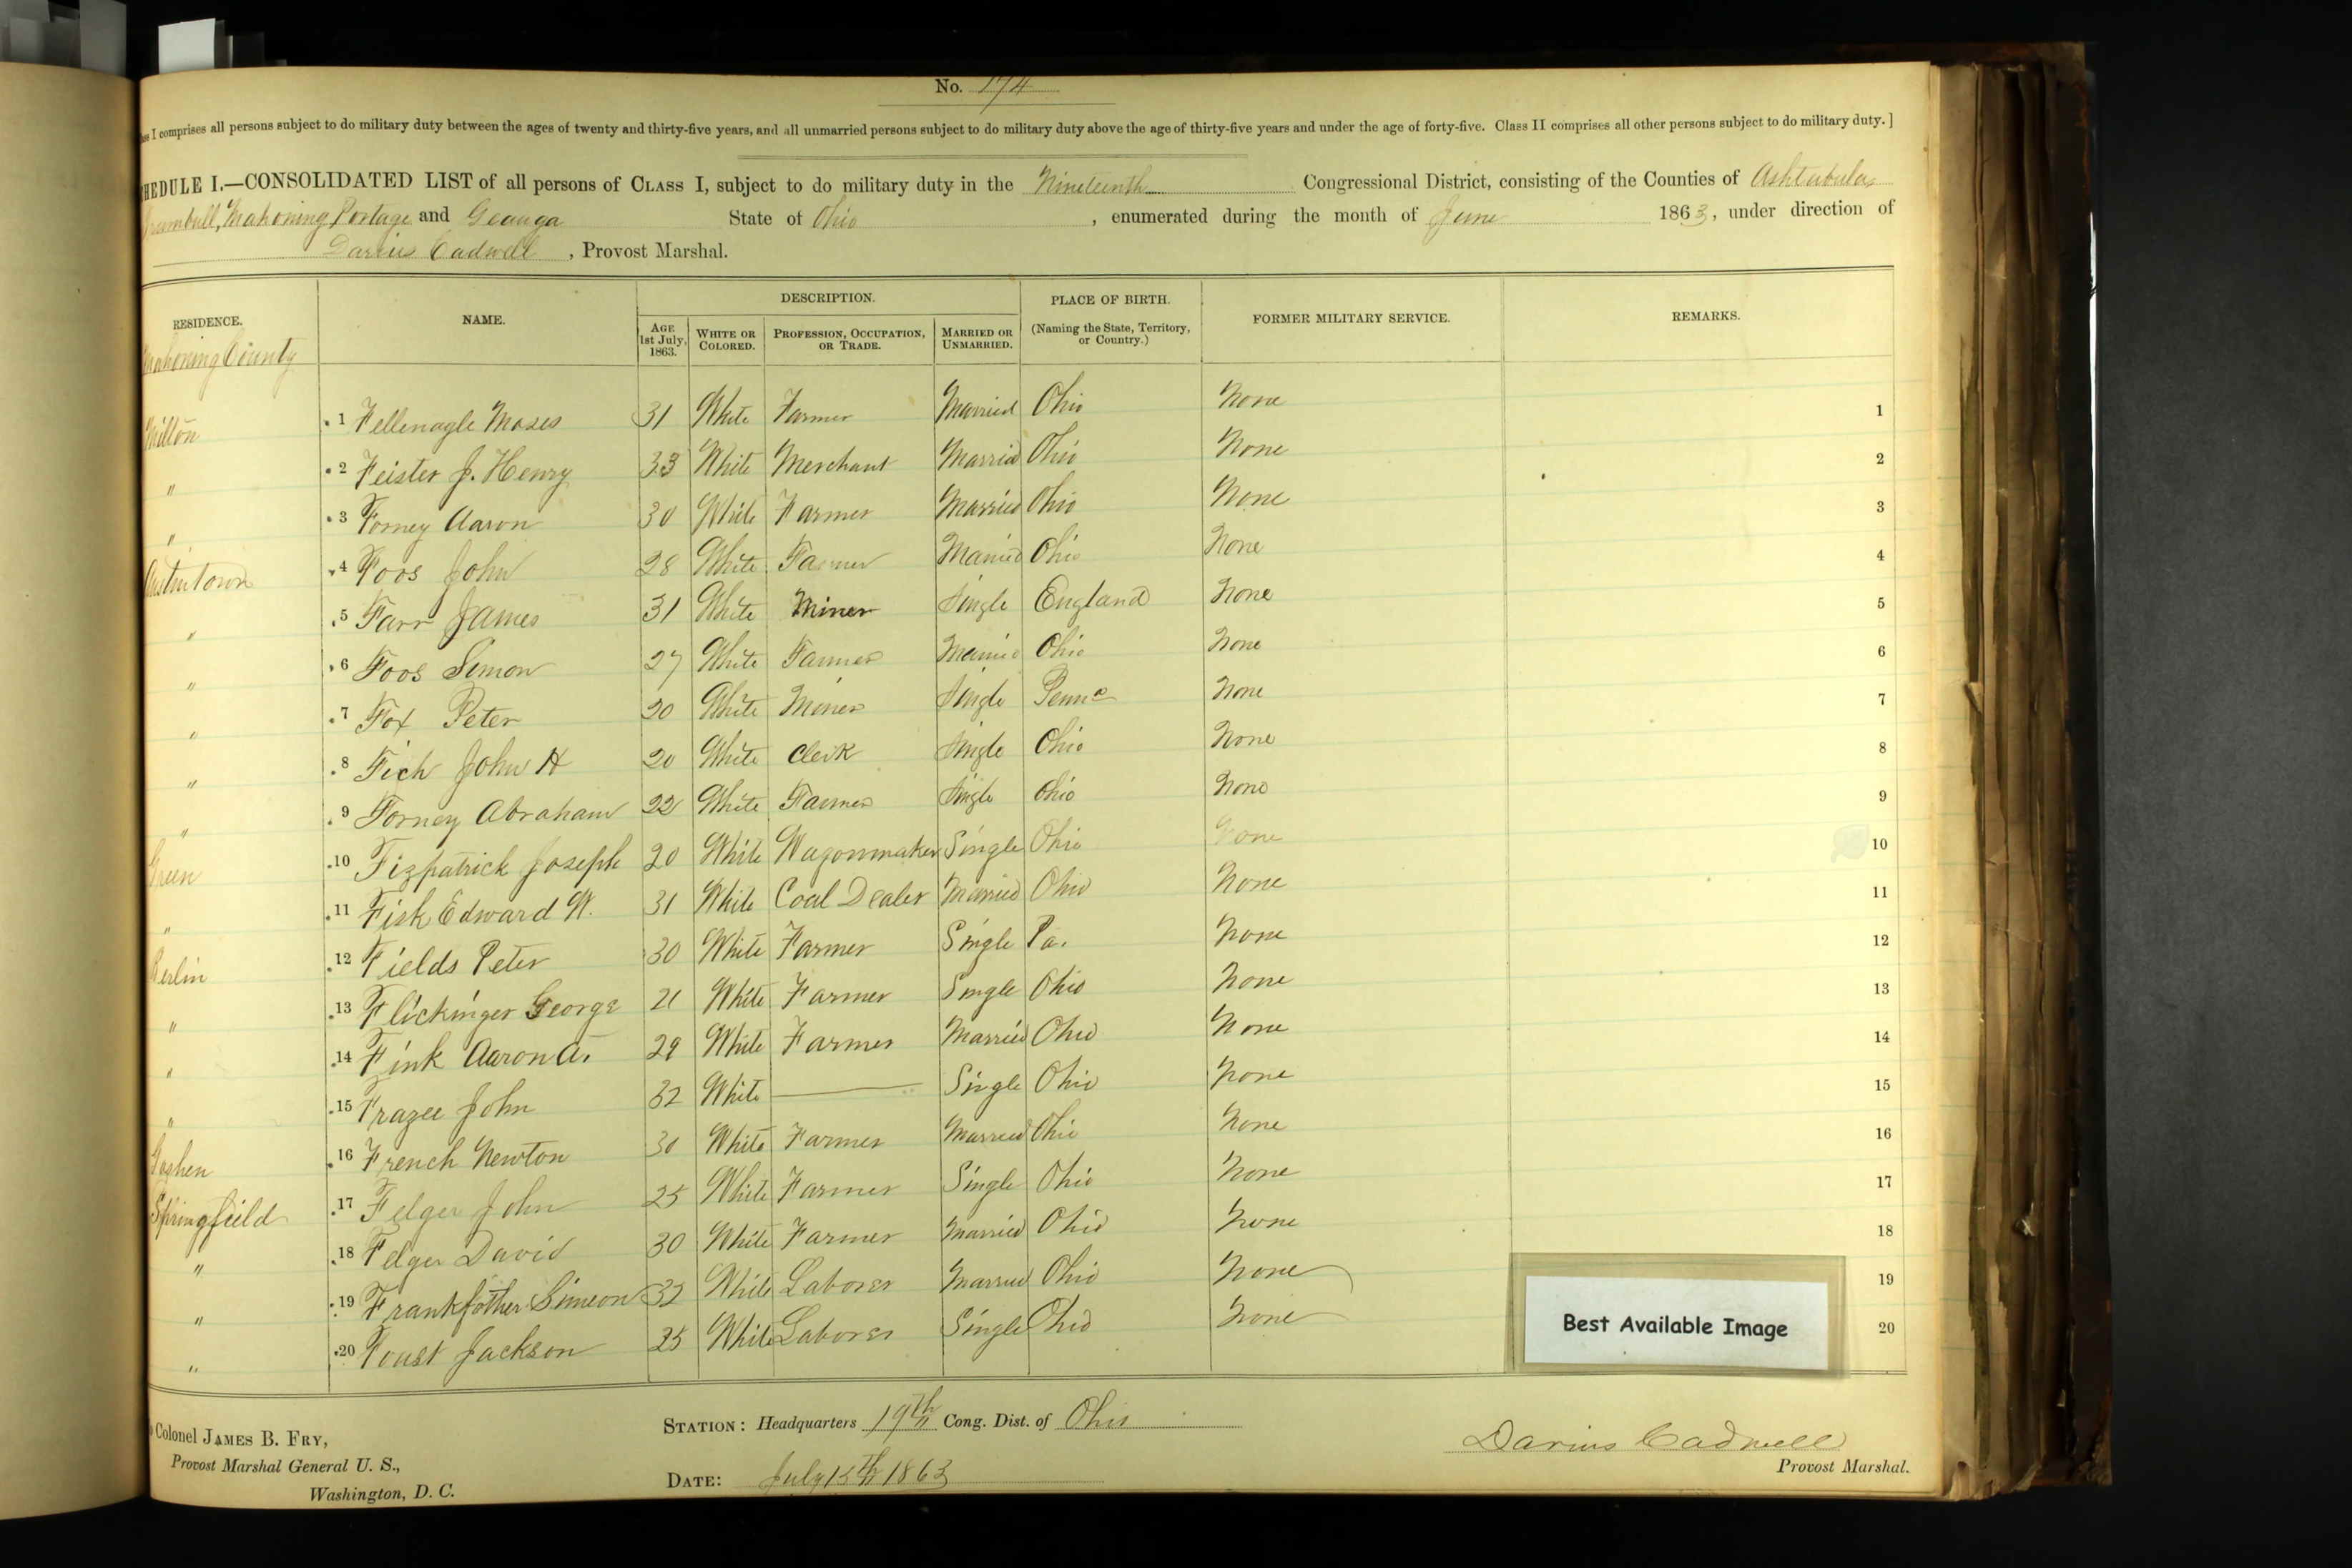 No. 174
ss I comprises all persons subject to do military duty between the ages of twenty and thirty-five years, and all unmarried persons subject to do military duty above the age of thirty-five years and under the age of forty-five. Class II comprises all other persons subject to do military duty.]
HEDULE I.—CONSOLIDATED LIST of all persons of CLASS I, subject to do military duty in the Nineteenth Congressional District, consisting of the Counties of Ashtabula
Trumbull, Mahoning Portage and Geauga State of Ohio, enumerated during the month of June 1863, under direction of
Darius Cadwell, Provost Marshal.
RESIDENCE. NAME. DESCRIPTION. PLACE OF BIRTH. (Naming the State, Territory, or Country.) FORMER MILITARY SERVICE. REMARKS.
AGE 1st July, 1863. WHITE OR COLORED. PROFESSION, OCCUPATION, OR TRADE. MARRIED OR UNMARRIED.
Mahoning County
Milton 1 Fellenagle Moses 31 White Farmer Married Ohio None 1
" 2 Feister J. Henry 33 White Merchant Married Ohio None 2
" 3 Forney Aaron 30 White Farmer Married Ohio None 3
Austintown 4 Foos John 28 White Farmer Married Ohio None 4
" 5 Farr James 31 White Miner Single England None 5
" 6 Foos Simon 27 White Farmer Married Ohio None 6
" 7 Fox Peter 20 White Miner Single Penna None 7
" 8 Fich John H 20 White Clerk Single Ohio None 8
" 9 Forney Abraham 22 White Farmer Single Ohio None 9
Green 10 Fizpatrick Joseph 20 White Wagonmaker Single Ohio None 10
" 11 Fisk Edward W. 31 White Coal Dealer Married Ohio None 11
Berlin 12 Fields Peter 30 White Farmer Single Pa. None 12
" 13 Flickinger George 21 White Farmer Single Ohio None 13
" 14 Fink Aaron A. 29 White Farmer Married Ohio None 14
" 15 Frazee John 32 White — Single Ohio None 15
Goshen 16 French Newton 30 White Farmer Married Ohio None 16
Springfield 17 Felger John 25 White Farmer Single Ohio None 17
" 18 Felger David 30 White Farmer Married Ohio None 18
" 19 Frankfother Simeon 32 White Laborer Married Ohio None 19
" 20 Foust Jackson 25 White Laborer Single Ohio None 20
Best Available Image
Colonel JAMES B. FRY,
Provost Marshal General U. S.,
Washington, D. C.
STATION: Headquarters 19th Cong. Dist. of Ohio
DATE: July 15th 1863
Darius Cadwell
Provost Marshal.